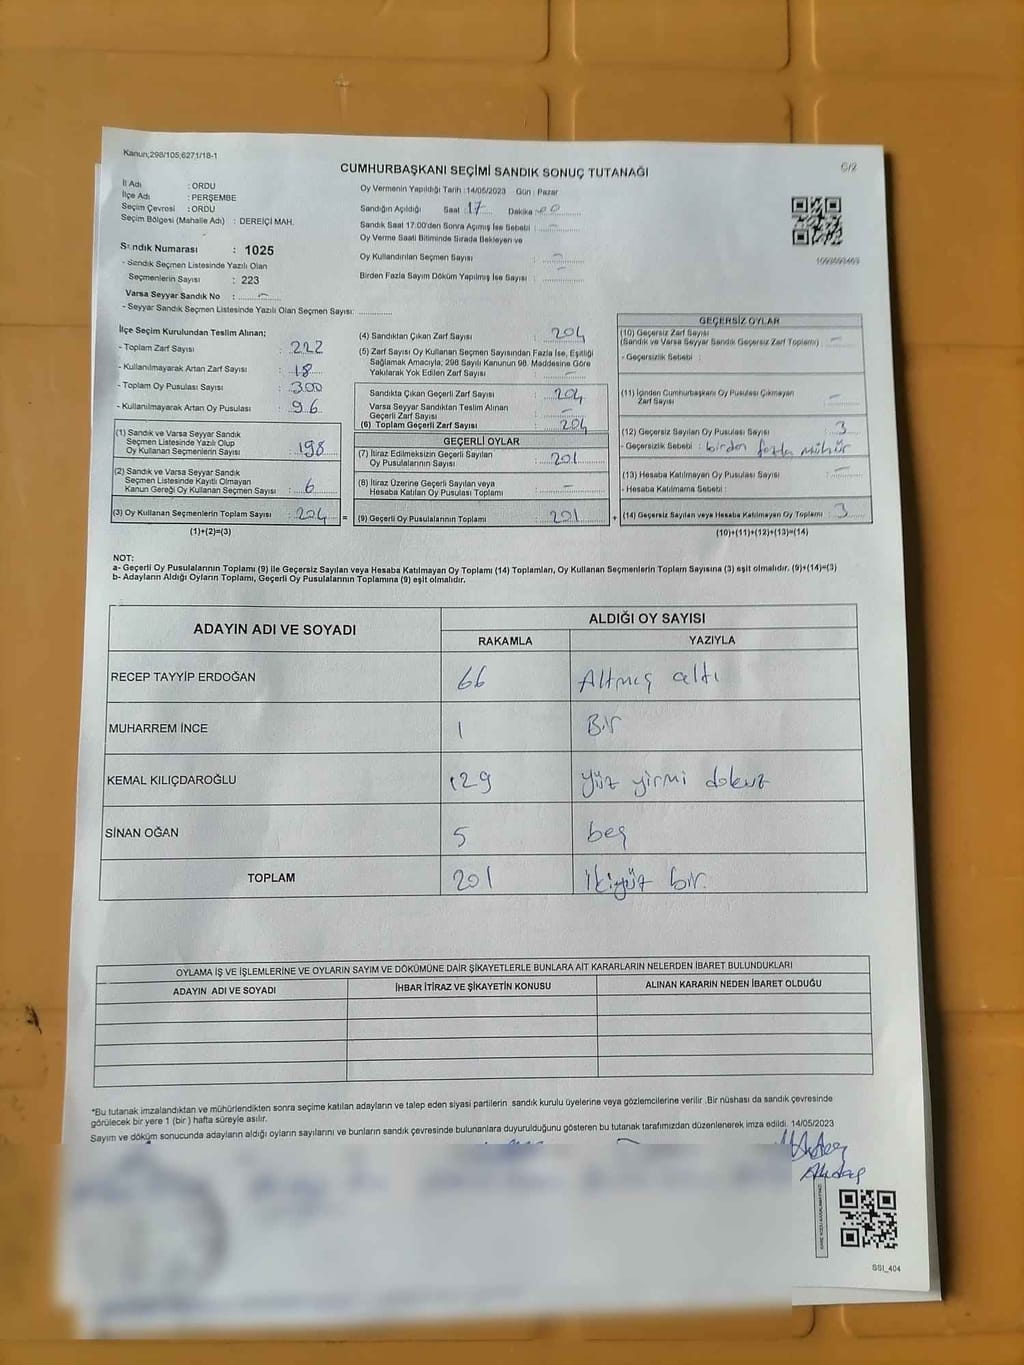 Kanun;298/105,6271/18-1
CUMHURBAŞKANI SEÇİMİ SANDIK SONUÇ TUTANAĞI
İl Adı : ORDU
İlçe Adı : PERŞEMBE
Seçim Çevresi : ORDU
Seçim Bölgesi (Mahalle Adı) : DEREİÇİ MAH.
Sandık Numarası : 1025
- Sandık Seçmen Listesinde Yazılı Olan
Seçmenlerin Sayısı : 223
Varsa Seyyar Sandık No : -
- Seyyar Sandık Seçmen Listesinde Yazılı Olan Seçmen Sayısı: ..............
Oy Vermenin Yapıldığı Tarih :14/05/2023 Gün : Pazar
Sandığın Açıldığı Saat : 17 Dakika : 00
Sandık Saat 17:00'den Sonra Açımış İse Sebebi : -
Oy Verme Saati Bitiminde Sırada Bekleyen ve
Oy Kullandırılan Seçmen Sayısı : -
Birden Fazla Sayım Döküm Yapılmış İse Sayısı : -
İlçe Seçim Kurulundan Teslim Alınan;
- Toplam Zarf Sayısı : 222
- Kullanılmayarak Artan Zarf Sayısı : 18
- Toplam Oy Pusulası Sayısı : 300
- Kullanılmayarak Artan Oy Pusulası : 96
(1) Sandık ve Varsa Seyyar Sandık
Seçmen Listesinde Yazılı Olup
Oy Kullanan Seçmenlerin Sayısı : 198
(2) Sandık ve Varsa Seyyar Sandık
Seçmen Listesinde Kayıtlı Olmayan
Kanun Gereği Oy Kullanan Seçmen Sayısı : 6
(3) Oy Kullanan Seçmenlerin Toplam Sayısı : 204 =
(1)+(2)=(3)
(4) Sandıktan Çıkan Zarf Sayısı : 204
(5) Zarf Sayısı Oy Kullanan Seçmen Sayısından Fazla İse, Eşitliği
Sağlamak Amacıyla; 298 Sayılı Kanunun 98. Maddesine Göre
Yakılarak Yok Edilen Zarf Sayısı : -
Sandıkta Çıkan Geçerli Zarf Sayısı : 204
Varsa Seyyar Sandıktan Teslim Alınan
Geçerli Zarf Sayısı : -
(6) Toplam Geçerli Zarf Sayısı : 204
GEÇERLİ OYLAR
(7) İtiraz Edilmeksizin Geçerli Sayılan
Oy Pusulalarının Sayısı : 201
(8) İtiraz Üzerine Geçerli Sayılan veya
Hesaba Katılan Oy Pusulası Toplamı : -
(9) Geçerli Oy Pusulalarının Toplamı : 201 +
GEÇERSİZ OYLAR
(10) Geçersiz Zarf Sayısı
(Sandık ve Varsa Seyyar Sandık Geçersiz Zarf Toplamı) : -
- Geçersizlik Sebebi :
(11) İçinden Cumhurbaşkanı Oy Pusulası Çıkmayan
Zarf Sayısı : -
(12) Geçersiz Sayılan Oy Pusulası Sayısı : 3
- Geçersizlik Sebebi : birden fazla mühür
(13) Hesaba Katılmayan Oy Pusulası Sayısı : -
- Hesaba Katılmama Sebebi :
(14) Geçersiz Sayılan veya Hesaba Katılmayan Oy Toplamı : 3
(10)+(11)+(12)+(13)=(14)
NOT:
a- Geçerli Oy Pusulalarının Toplamı (9) ile Geçersiz Sayılan veya Hesaba Katılmayan Oy Toplamı (14) Toplamları, Oy Kullanan Seçmenlerin Toplam Sayısına (3) eşit olmalıdır. (9)+(14)=(3)
b- Adayların Aldığı Oyların Toplamı, Geçerli Oy Pusulalarının Toplamına (9) eşit olmalıdır.
ADAYIN ADI VE SOYADI
ALDIĞI OY SAYISI
RAKAMLA YAZIYLA
RECEP TAYYİP ERDOĞAN 66 Altmış altı
MUHARREM İNCE 1 Bir
KEMAL KILIÇDAROĞLU 129 yüz yirmi dokuz
SİNAN OĞAN 5 beş
TOPLAM 201 ikiyüz bir.
OYLAMA İŞ VE İŞLEMLERİNE VE OYLARIN SAYIM VE DÖKÜMÜNE DAİR ŞİKAYETLERLE BUNLARA AİT KARARLARIN NELERDEN İBARET BULUNDUKLARI
ADAYIN ADI VE SOYADI İHBAR İTİRAZ VE ŞİKAYETİN KONUSU ALINAN KARARIN NEDEN İBARET OLDUĞU
*Bu tutanak imzalandıktan ve mühürlendikten sonra seçime katılan adayların ve talep eden siyasi partilerin sandık kurulu üyelerine veya gözlemcilerine verilir .Bir nüshası da sandık çevresinde
görülecek bir yere 1 (bir ) hafta süreyle asılır.
Sayım ve döküm sonucunda adayların aldığı oyların sayılarını ve bunların sandık çevresinde bulunanlara duyurulduğunu gösteren bu tutanak tarafımızdan düzenlenerek imza edildi. 14/05/2023
SSI_404